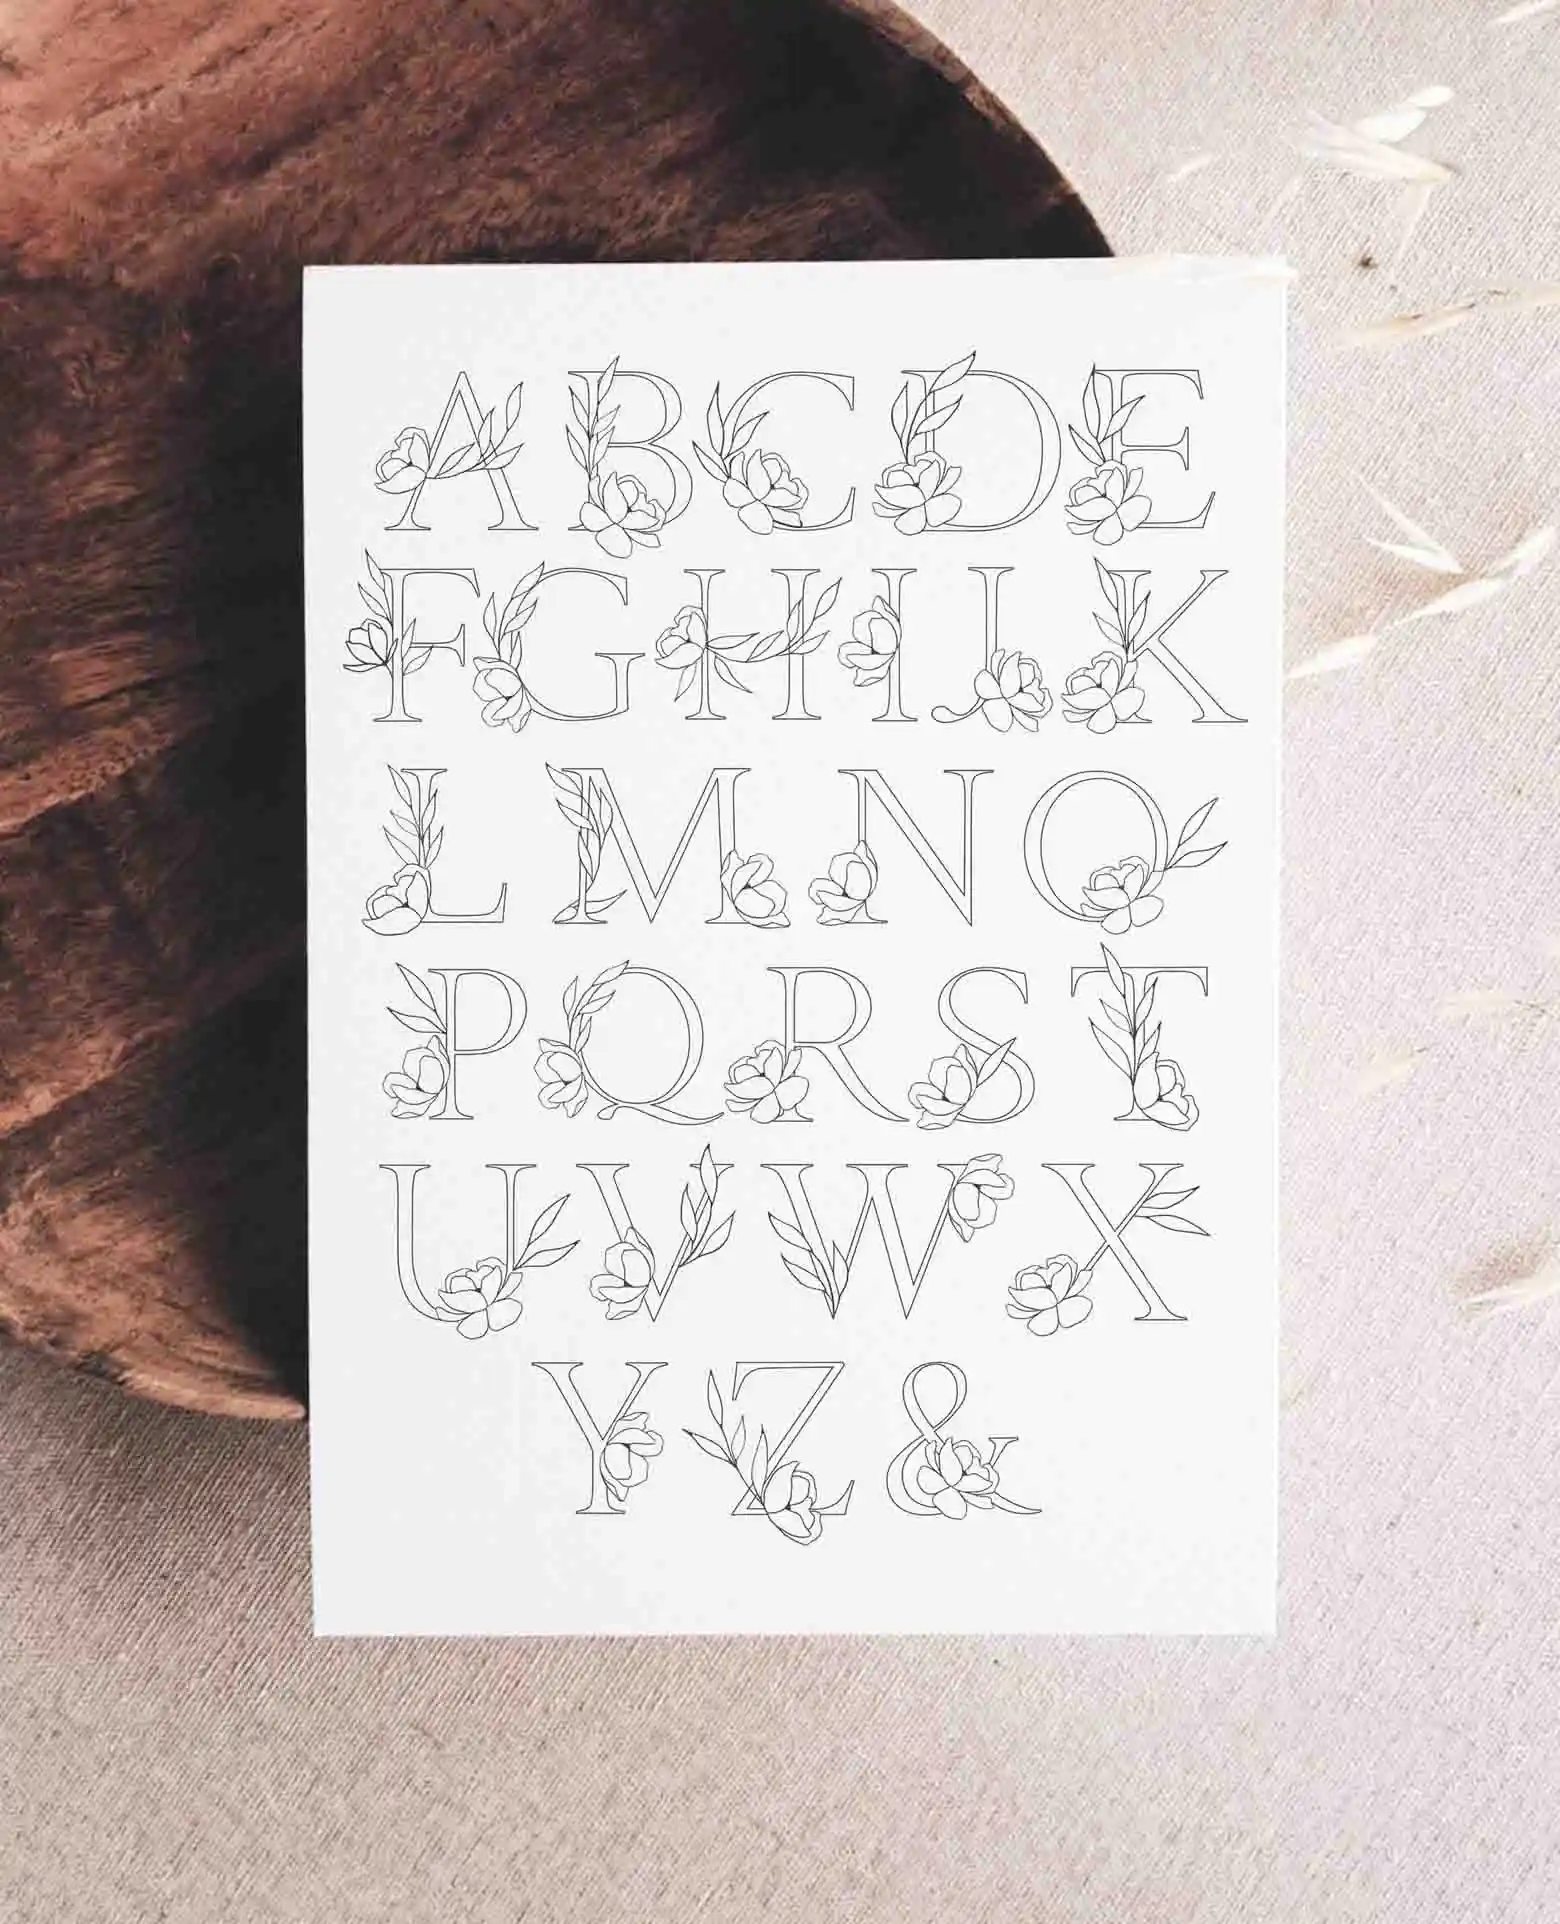 ABCDE
FGHIJK
LMNO
PQRST
UVWX
YZ&